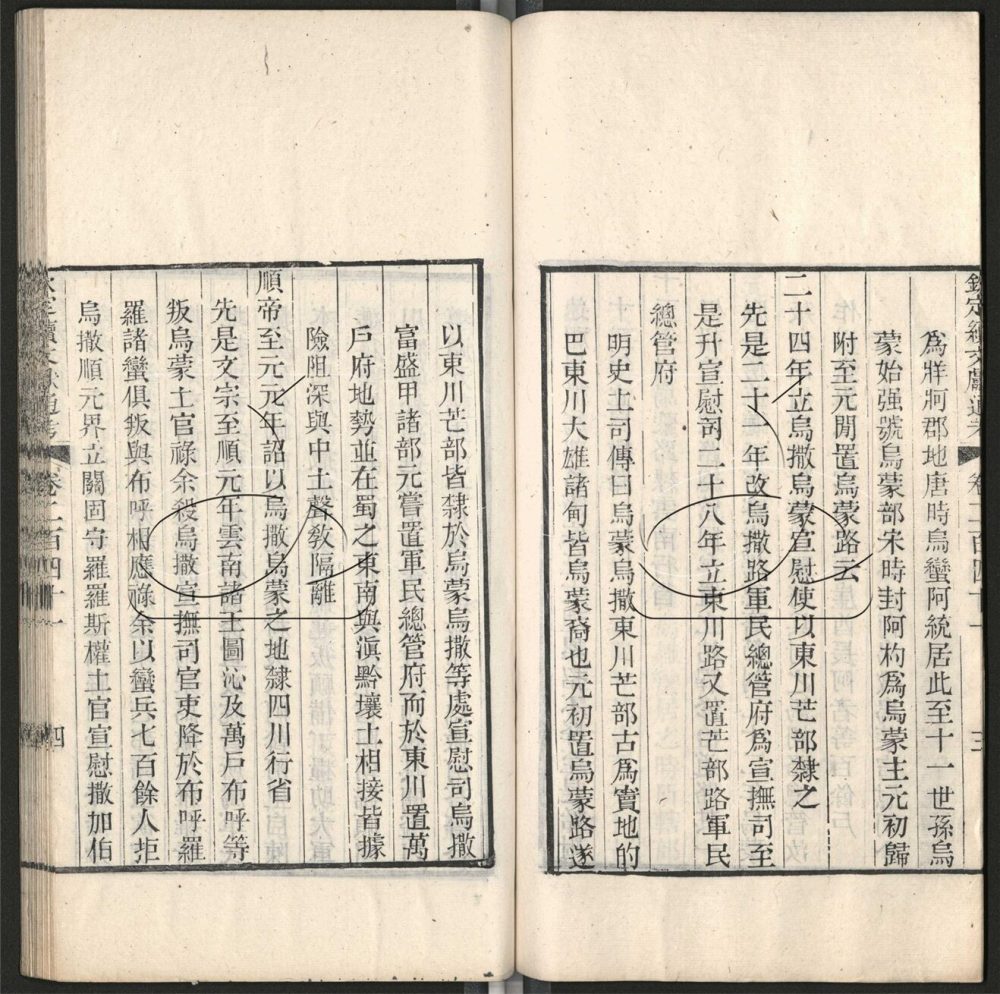 欽定續文獻通考 卷二百四十一 三
爲牂牁郡地唐時烏蠻阿統居此至十一世孫烏
蒙始强號烏蒙部宋時封阿杓爲烏蒙主元初歸
附至元閒置烏蒙路云
二十四年立烏撒烏蒙宣慰使以東川芒部隸之
先是二十一年改烏撒路軍民總管府爲宣撫司至
是升宣慰司二十八年立東川路又置芒部路軍民
總管府
明史土司傳曰烏蒙烏撒東川芒部古爲竇地的
巴東川大雄諸甸皆烏蒙裔也元初置烏蒙路遂
以東川芒部皆隸於烏蒙烏撒等處宣慰司烏撒
富盛甲諸部元嘗置軍民總管府而於東川置萬
戶府地勢並在蜀之東南與滇黔壤土相接皆據
險阻深與中土聲敎隔離
順帝至元元年詔以烏撒烏蒙之地隸四川行省
先是文宗至順元年雲南諸王圖沁及萬戶布呼等
叛烏蒙土官祿余殺烏撒宣撫司官吏降於布呼羅
羅諸蠻俱叛與布呼相應祿余以蠻兵七百餘人拒
烏撒順元界立關固守羅羅斯權土官宣慰撒加伯
欽定續文獻通考 卷二百四十一 四